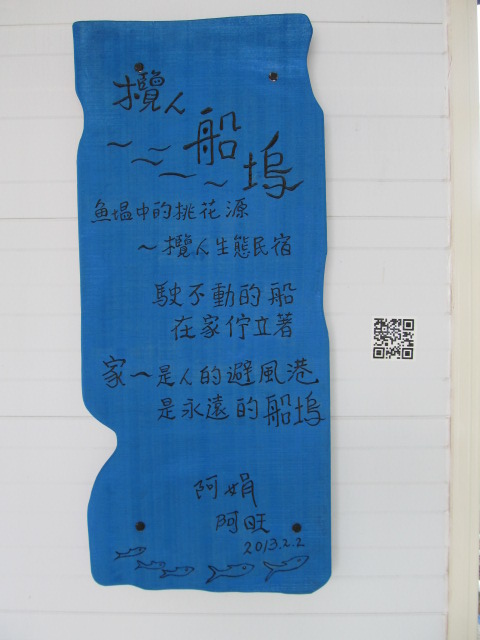 攬人
船塢
魚塭中的挑花源
～攬人生態民宿
駛不動的船
在家佇立著
家～是人的避風港
是永遠的船塢
阿娟
阿旺
2013.2.2